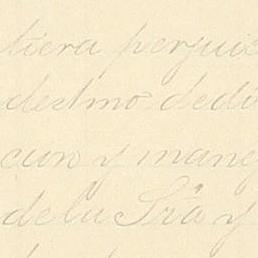 tiera perjuic
destmo dedu
cion y mane
dela Sra y